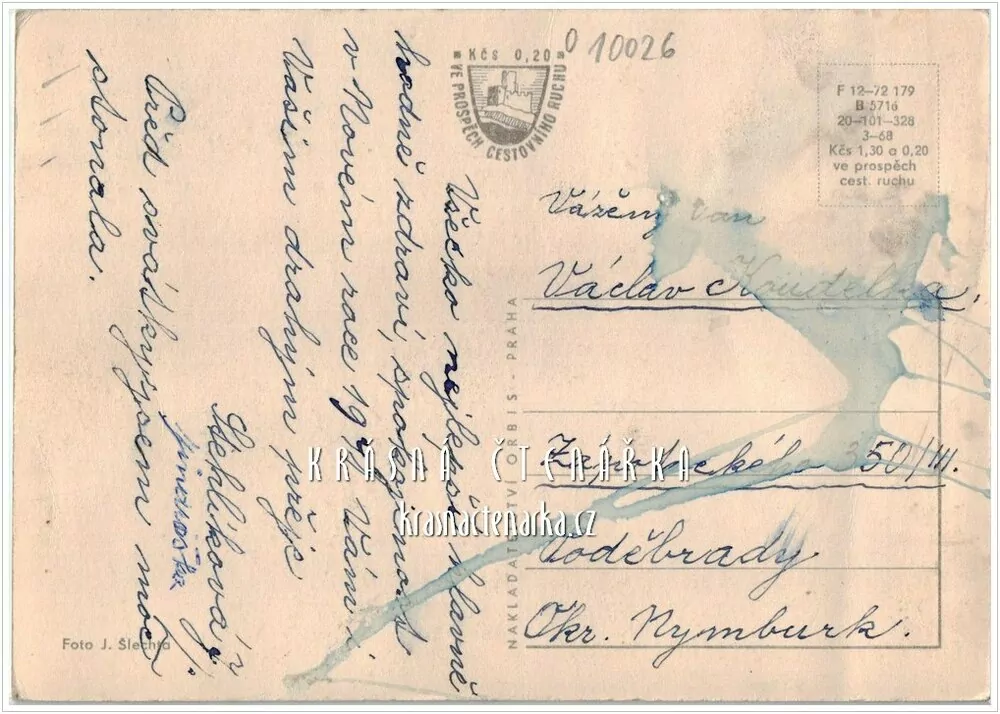 0 10026
Kčs 0,20
VE PROSPĚCH CESTOVNÍHO RUCHU
F 12—72 179
B 5716
20—101—328
3—68
Kčs 1,30 a 0,20
ve prospěch
cest. ruchu
Všecko nejlepší hlavně
hodně zdraví, spokojenost
v Novém roce 19 Vám i
Vašim drahým přeje
Mehlíková
Před svátky jsem moc
stonala.
Vážený pan
Václav Koudelka,
Zápotockého 350/III.
Poděbrady
Okr. Nymburk.
NAKLADATELSTVÍ ORBIS - PRAHA
Foto J. Šlechta
KRÁSNÁ ČTENÁŘKA
krasnactenarka.cz